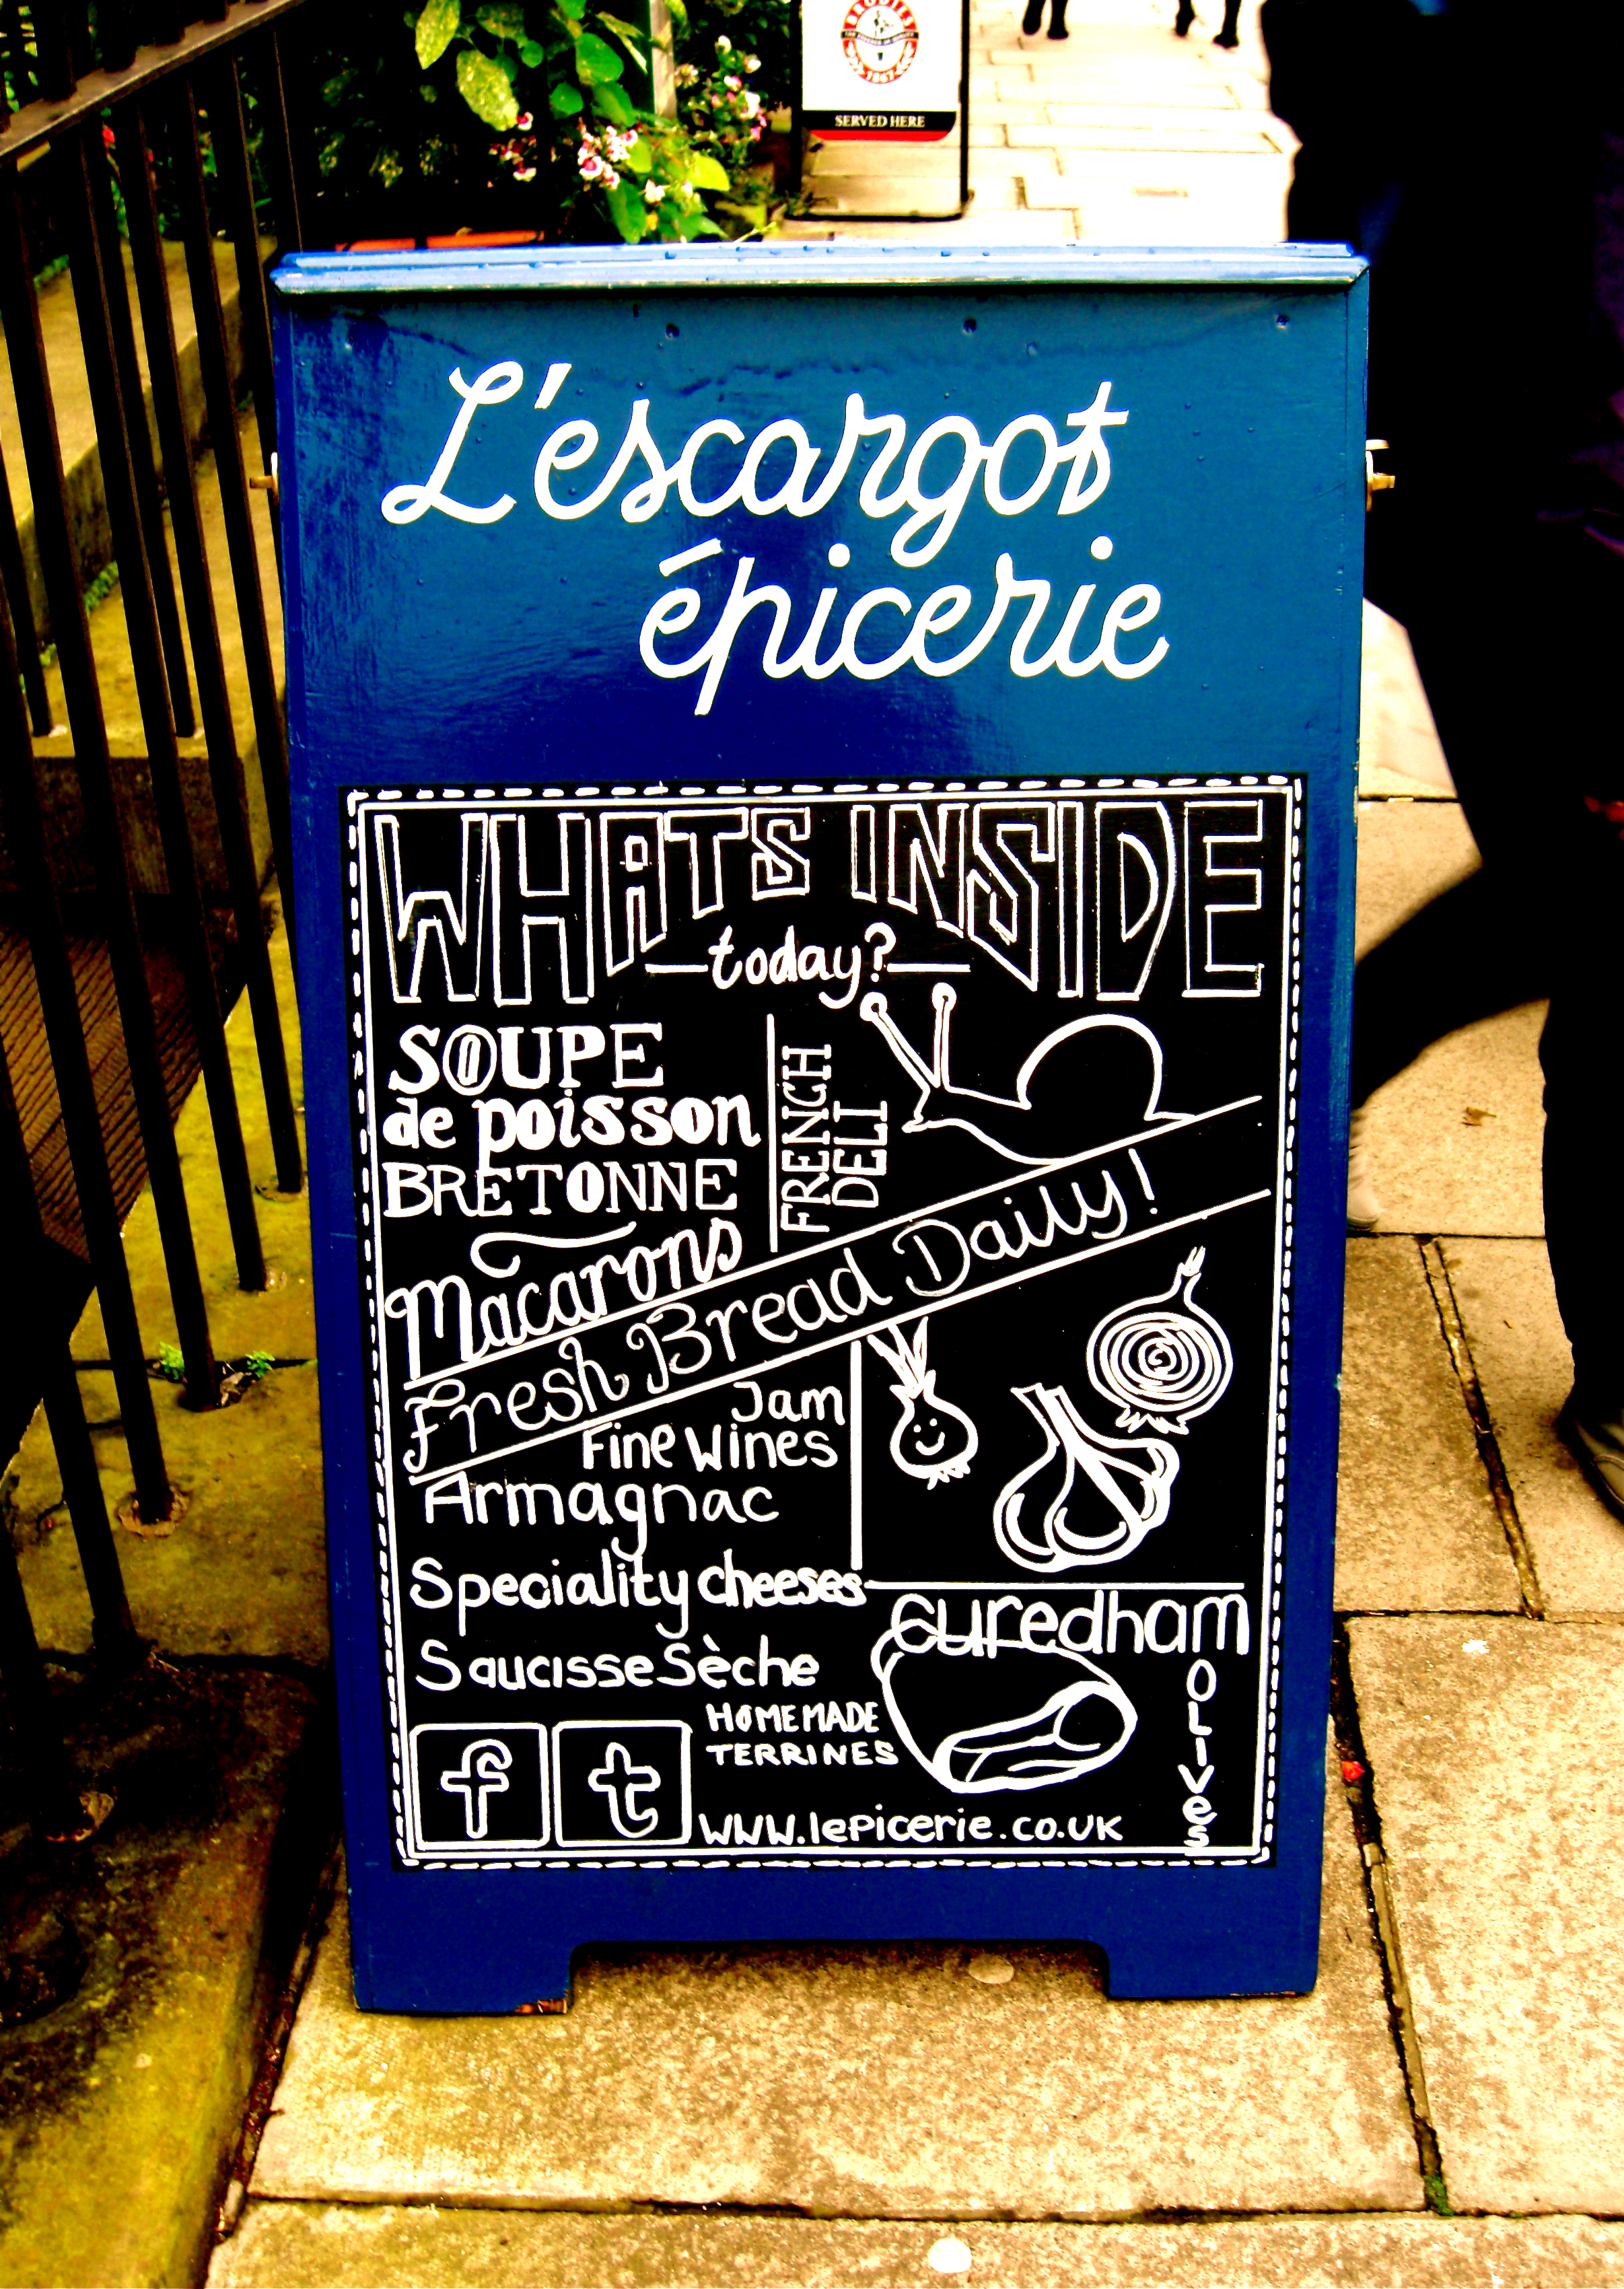 BRODIES
1867
SERVED HERE
L'escargot
épicerie
WHATS INSIDE
today?
SOUPE
de poisson
BRETONNE
FRENCH
DELI
Macarons
Fresh Bread Daily!
Jam
Fine Wines
Armagnac
Speciality cheeses
Saucisse Sèche
cured ham
OLIVes
HOMEMADE
TERRINES
f t
WWW.lepicerie.co.uk